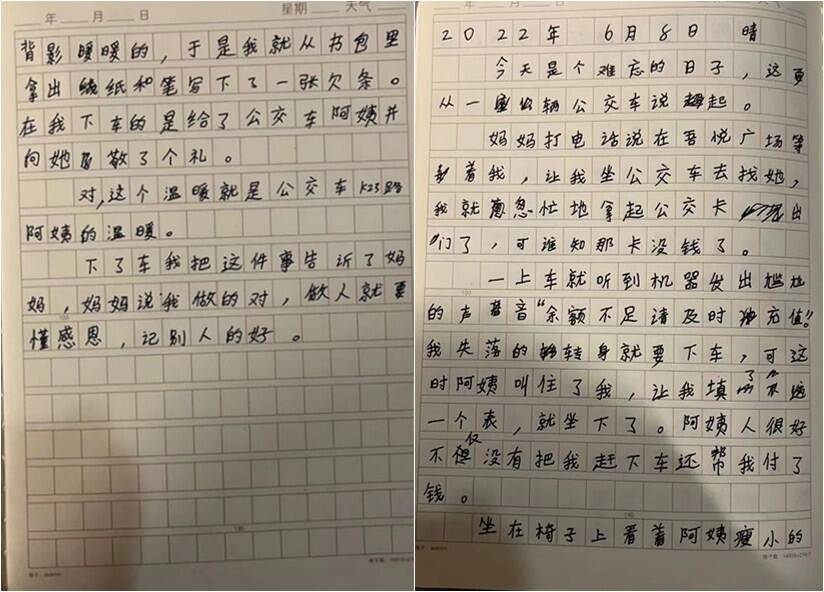 年 月 日 星期 天气
背影暖暖的，于是我就从书包里
拿出纸和笔写下了一张欠条。
在我下车的是给了公交车阿姨并
向她敬了个礼。
对，这个温暖就是公交车K23路
阿姨的温暖。
下了车我把这件事告诉了妈
妈，妈妈说我做的对，做人就要
懂感恩，记别人的好。
2022年 6月8日 晴
今天是个难忘的日子，这要
从一辆公交车说起。
妈妈打电话说在吾悦广场等
着我，让我坐公交车去找她，
我就急忙地拿起公交卡出
门了，可谁知那卡没钱了。
一上车就听到机器发出尴尬
的声音“余额不足请及时充值!”
我失落的转身就要下车，可这
时阿姨叫住了我，让我填了
一个表，就坐下了。阿姨人很好
不仅没有把我赶下车还帮我付了
钱。
坐在椅子上看着阿姨瘦小的